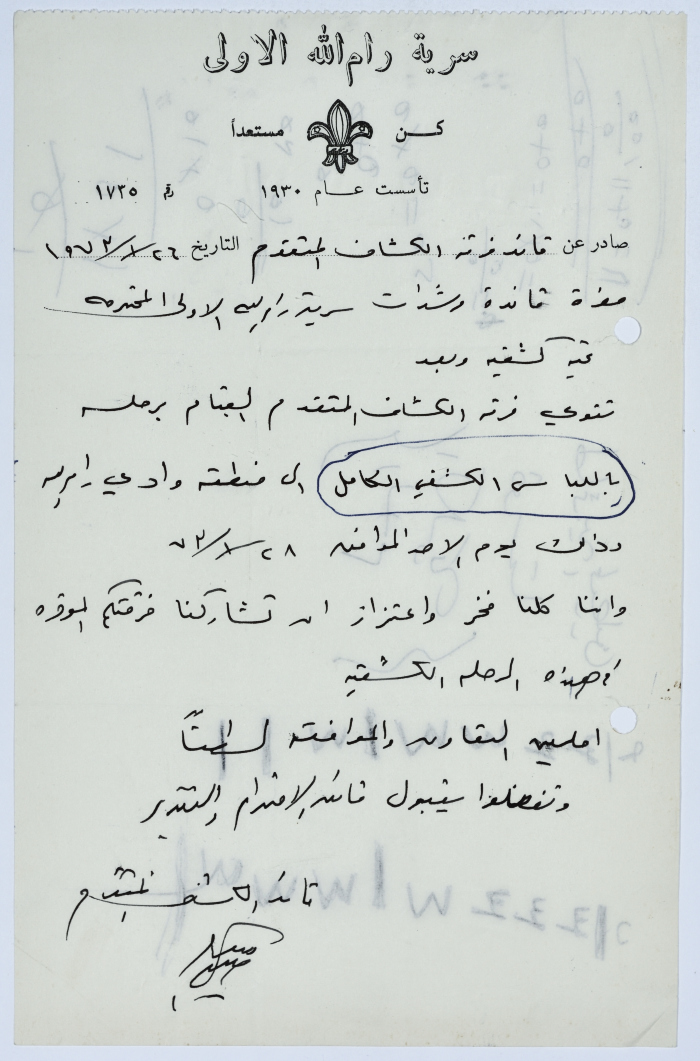 سرية رام الله الاولى
كن مستعداً
تأسست عام ١٩٣٠ رقم ١٧٣٥
صادر عن قائد فرقة الكشاف المتقدم التاريخ ٢٦/١/١٩٧٣
حضرة قائدة مرشدات سرية رام الله الاولى المحترمه
تحية كشفيه وبعد
تنوي فرقة الكشاف المتقدم القيام برحلة
باللباس الكشفي الكامل الى منطقة وادي رام الله
وذلك يوم الاحد الموافق ٢٨/١/٧٣
واننا كلنا فخر واعتزاز ان تشاركنا فرقتكم الموقره
في هذه الرحله الكشفيه
املين التعاون والموافقة
وتفضلوا بقبول فائق الاحترام والتقدير
قائد الكشاف المتقدم